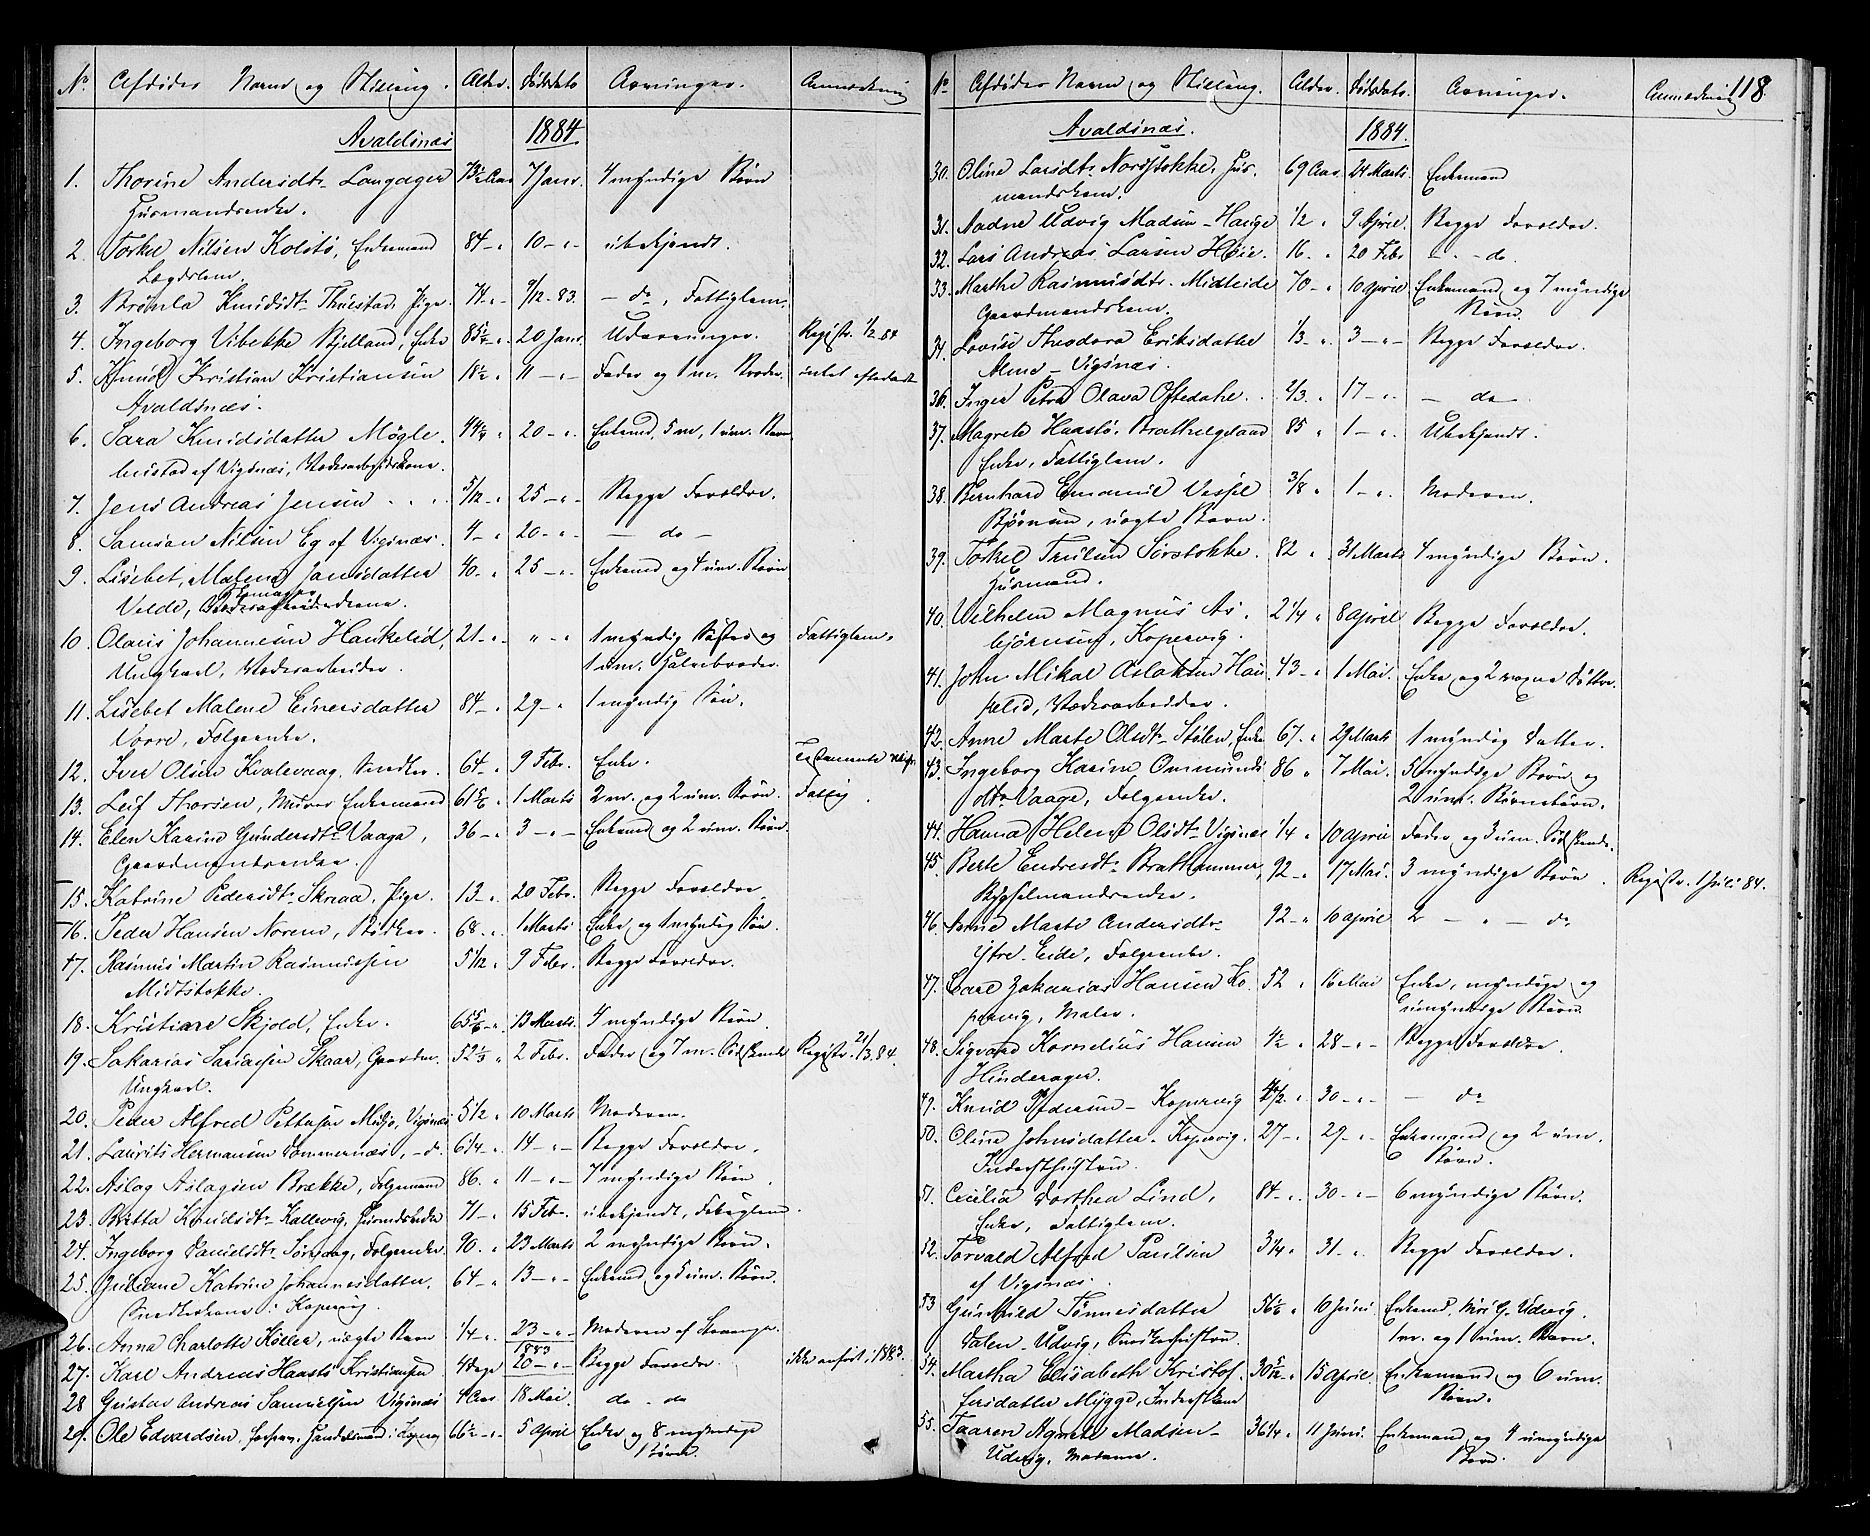 No. Afdødes Navn og Stilling. Alder. Dødsdato Arvinger. Anmerkning
Avaldsnæs 1884
1. Thorine Andersdtr. Langåger 73½ Aar 7 Janr. 4 myndige Børn
Husmandsenke.
2. Torkel Nilsen Kolstø, Enkemand 84 - " 10 - " - ubekjendt.
Lægdslem.
3. Brønla Knudsdtr. Pige. 74 - " 9/12 83. - do, Fattiglem.
4. Ingeborg Vibekke Bjelland, Enke 20 Janr. Udarvinger. Registr. 1/2 84
5. Knud Kristian Kristiansen 18½ " 11 - " - Fader og 1 m. Broder. intet efterladt
Avaldsnæs.
6. Sara Knudsdatter Møgle- 44¼ " 20 - ". Enkemd, 5 m, 1 um. Børn
bustad af Vigsnæs,
7. Jens Andreas Jensen 5/12 - " 25 - " - Begge Forældre.
8. Samson Nilsen Eg af Vigsnæs. 4 - " 20 - ". - do -
9. Lisebet Malene Jansdatter 40 - " 25 - ". Enkemd og 4 um. Børn
Velde,
10. Olaus Johannesen Haukelid, 21 - ". " - " 1 myndig Søster og Fattiglem.
Ungkarl, 1 um. Halvbroder.
11. Lisebet Malene Einersdatter 84 - " 29 - " 1 myndig Søn.
Vorre, Folgeenke.
12. Iver Olsen Kvalevaag, Snedker. 64 - " 9 Febr. Enke.
13. Leif Thorsen, Murer Enkemand 61 5/6 " 1 Marts 2 m. og 2 um. Børn. Fattig
14. Elen Karine Gundersdtr. Vaaga, 36 - " 3 - " - Enkemd og 2 um. Børn.
15. Katrine Pedersdtr. Skreaa, Pige. 13 - " 20 Febr. Begge Forældre
16. Peder Hansen Norem, Bødker. 68 - ". 1 Marts Enke og 1 myndig Søn.
17. Rasmus Martin Rasmussen 5/12 " 9 Febr. Begge Forældre.
Midtstokke.
18. Kristiane Skjold, Enke. 65 5/6 - " 13 Marts. 4 myndige Børn
19. Sakarias Skaar, Gaardm. 52 1/3 " 2 Febr. Fader og 7 m. Sødskende Registr. 21/3 84.
Ungkarl.
20. Peder Alfred Pettersen Vigsnæs 5½ " 10 Marts Moderen.
21. Laurits Hermansen Sommernæs, - do 6¼ " 14 - " - Begge Forældre.
22. Aslag Aslagsen Brække, Folgemand 86. " 11 - " - 7 myndige Børn
23. Britta Knudsdtr. Kallevig, Husmdsenke 71 - " 15 Feb. ubekjendt, Fattiglem.
24. Ingeborg Danielsdtr. Sørvaag, Folgeenke. 90. " 23 Marts 2 myndige Børn.
25. Juliane Katrine Johannesdatter, 64 - " 13 - " - Enkemd og 5 um. Børn.
Snedkerkone i Kopervig.
26. Anna Charlotte Køller, uægte Barn 1/4 - ". 23 - " - Moderen af Stavanger.
1883
27. Karl Andreas Haastø Kristiansen 4 dage 20 - " - Begge Forældre. ikke anført i 1883.
28 Gustav Andreas Samuelsen Vigsnæs 4 Aar 18 Mai. do. do
29. Ole Edvardsen, Handelsmand i Kopervig 66½ - " 5 April Enke og 8 myndige
Børn.
No. Afdødes Navn og Stilling. Alder. Dødsdato. Arvinger. Anmerkning 118.
Avaldsnæs. 1884.
30. Oline Larsdtr. Nordstokke, Hus- 69 Aar. 24 Marts. Enkemand
mandskone.
31. Aadne Udvig Madsen - Hauge 1/2 " 9 April. Begge Forældre.
32. Lars Andreas Larsen Høie. 16. " 20 Febr - " - do.
33. Marthe Rasmusdtr. Midteide 70 - " 10 April Enkemand og 7 myndige
Gaardmandskone. Børn.
34. Lovise Theodora Eriksdatter 1/3 - ". 3 - " - Begge Forældre.
- Vigsnæs.
36. Inger Petra Olava Oftedahl. 2/3 " 17 - ". - do -
37. Magrete Haastø, 85 " 1 - ". Ubekjendt.
Enke, Fattiglem.
38. Bernhard Emanuel Vessel 3/8 " 1 - ". Moderen.
Bjørnsen, uægte Barn.
39. Torkel Trulsen Sørstokke. 82 " 31 Marts 4 myndige Børn.
Husmand.
40. Wilhelm Magnus As- 2¼ " 8 April Begge Forældre.
bjørnsen, Kopervig.
41. John Mikal Aslaksen Hau- 43 - " 1 Mai. Enke og 2 Døttre.
kelid,
42. Anne Marte Olsdtr. Stølen, Enke 67. " 29 Marts 1 myndig Datter.
43. Ingeborg Karine Ommunds- 86 " 7 Mai. 5 myndige Børn og
dtr. Vaage, Folgeenke. 2 um. Børnebørn.
44. Hanna Helene Olsdtr. Vigsnæs 1/4 " 10 April Fader og 3 um. Sødskende.
45. Berte Endresdtr. Brathammer, 92 - " 17 Mai. 3 myndige Børn. Registr. 1 Juli 84.
Bygselmandsenke.
46. Anne Marte Andersdtr. 92 - " 10 April 2 - " - do
Ytre-Eide, Folgeenke.
47. Carl Zakarias Hansen Ko- 52 " 16 Mai Enke, myndige og
pervig, Maler. umyndige Børn
48. Sigvard Kornelius Hansen 4½ " 28 - " - Begge Forældre.
Hinderager.
49. Knud Pedersen - Kopervig 30 - " - - do
50. Oline Johnsdatter - Kopervig. 27 - " 29 - " - Enkemand og 2 um.
Børn.
51. Cecilia Dorthea Lind, 84 - ". 30 - " - 6 myndige Børn.
Enke, Fattiglem.
52. Torvald Alfred Paulsen 3¼ " 31 - ". Begge Forældre.
af Vigsnæs.
53 Gunhild Tønnesdatter 10 Juni. Enkemd. G. Udvig,
Dalen - Udvig, 1 m. og 1 um. Børn.
54. Martha Elisabeth Kristof- 30 5/12 - " 15 April. Enkemand og 6 um.
fersdatter Mygge, Børn.
55. Taaren Agnete Madsen - 36¼ " 11 Juni. Enkemand og 4 umyndige
Udvig, Madamme. Børn.